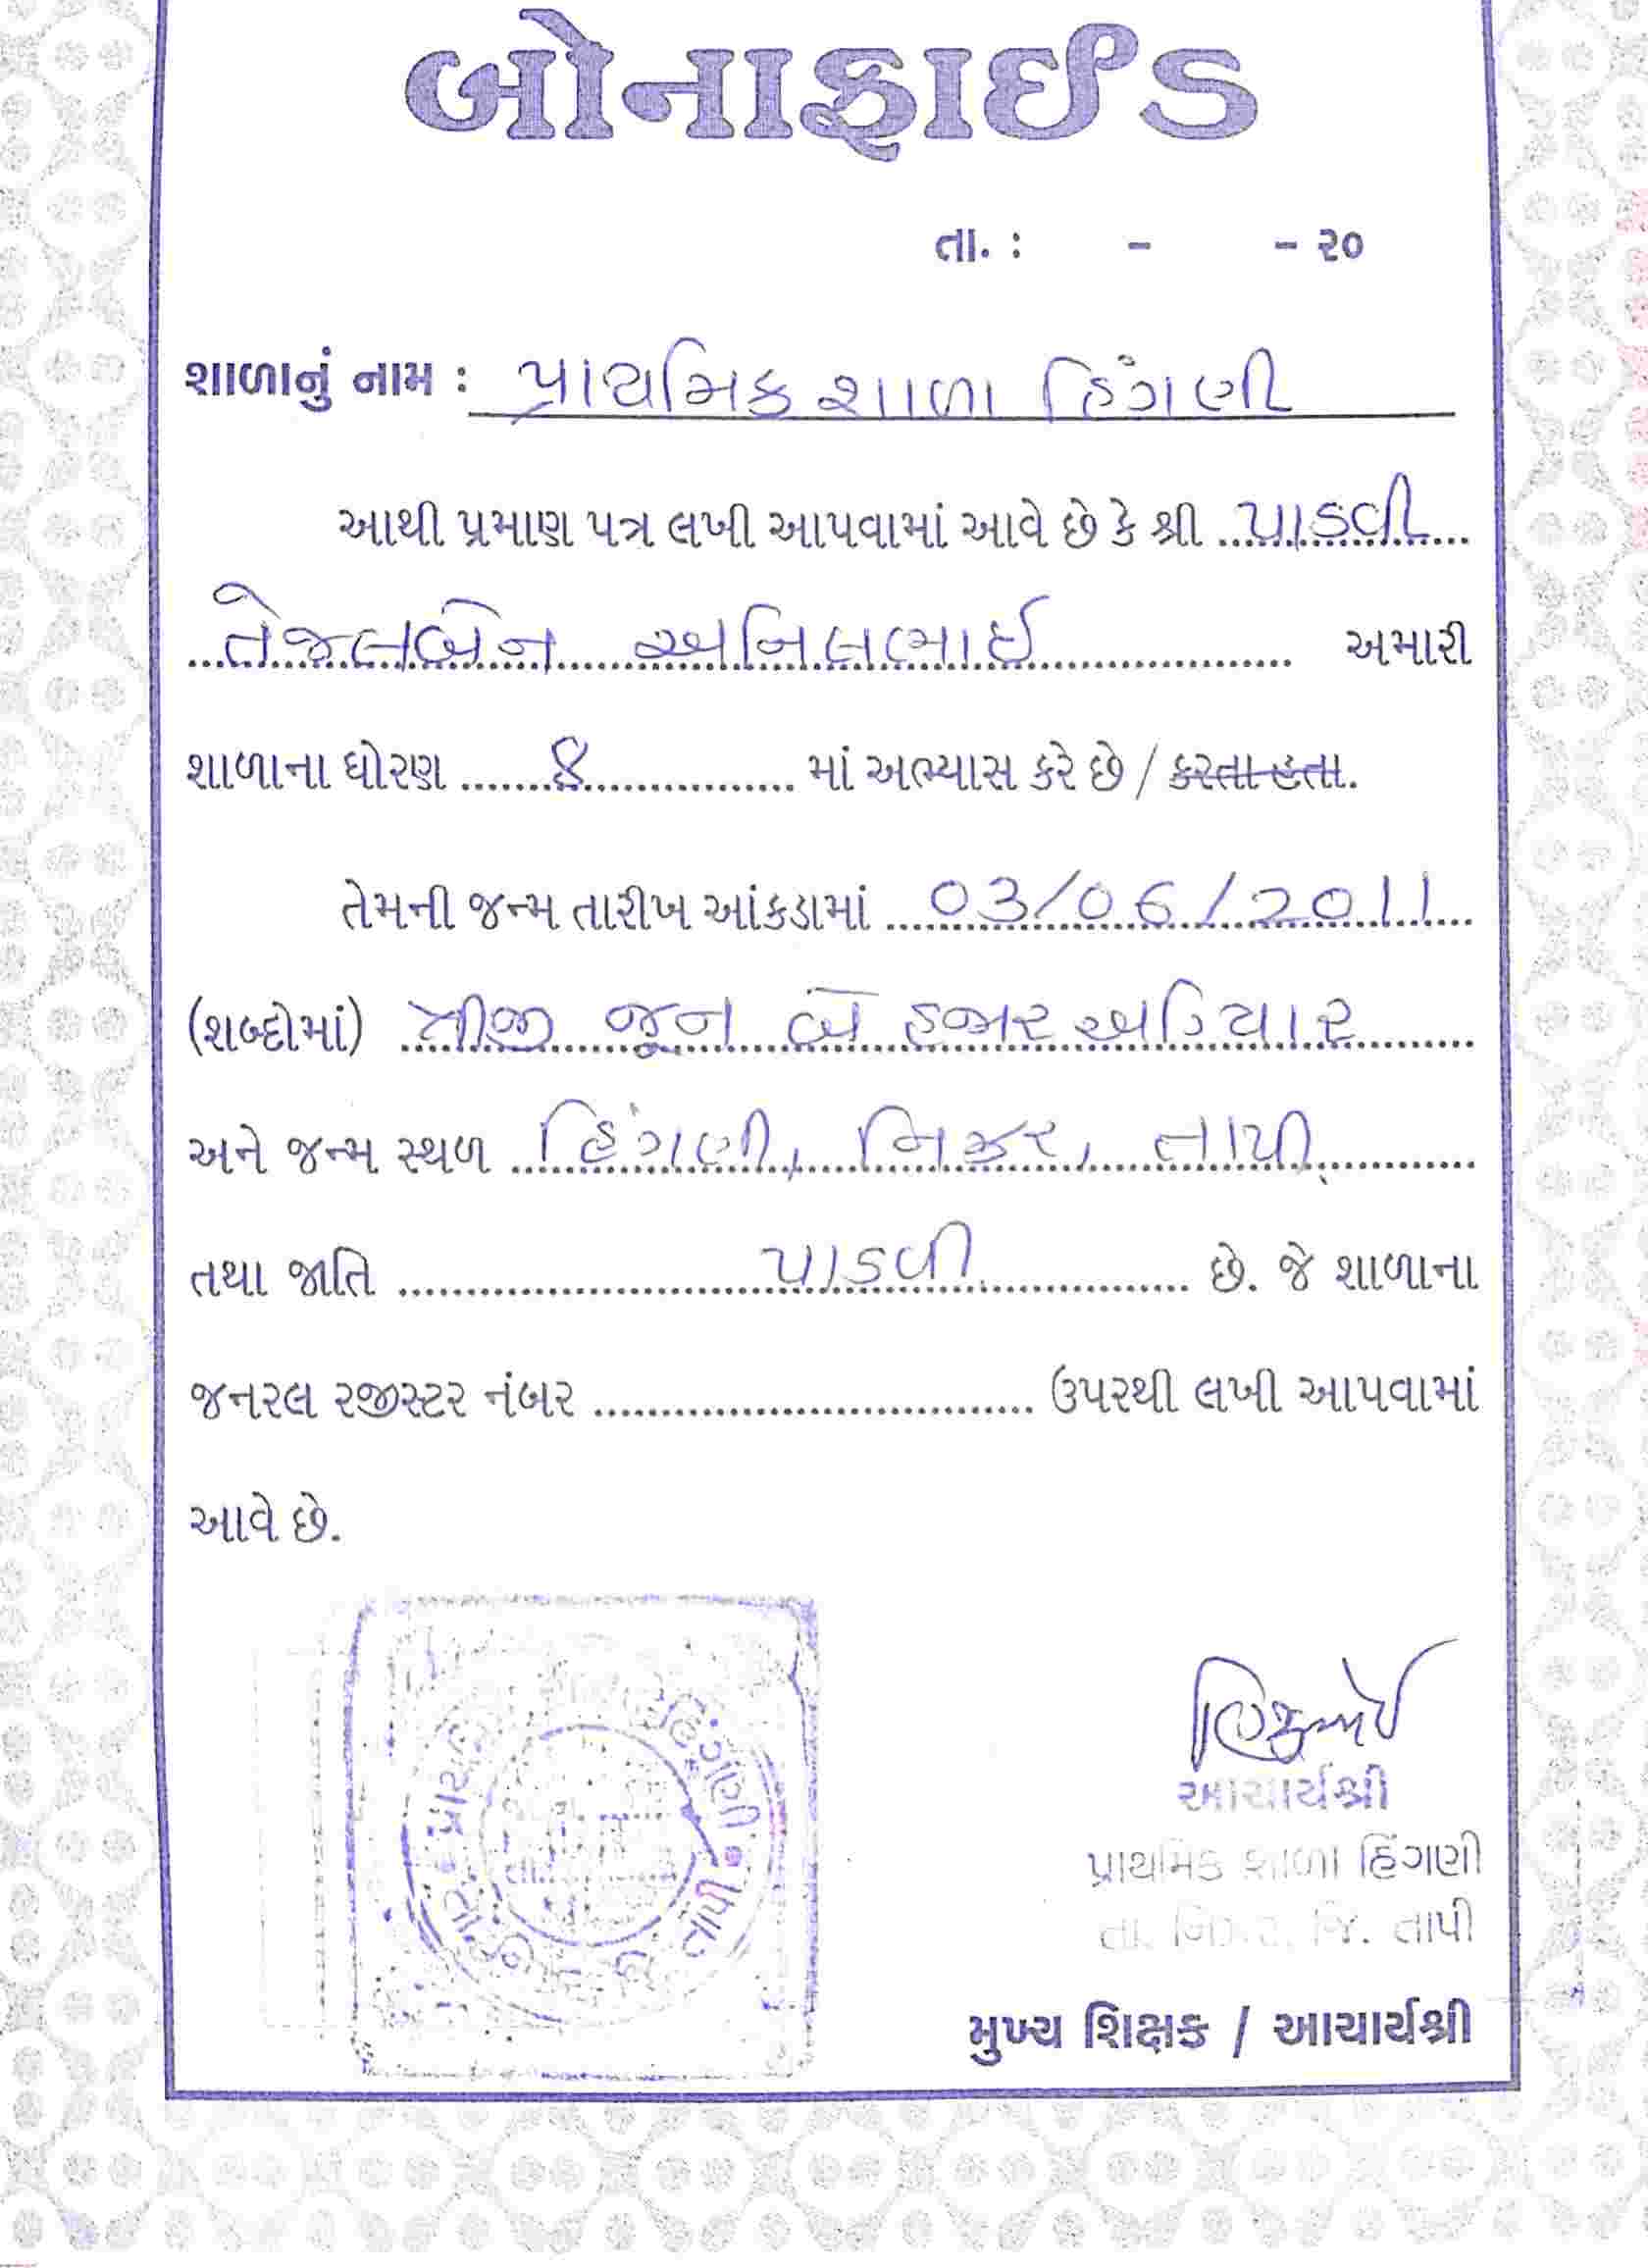 બોનાફાઈડ
તા. : - - ૨૦
શાળાનું નામ : પ્રાથમિક શાળા હિંગણી
આથી પ્રમાણ પત્ર લખી આપવામાં આવે છે કે શ્રી પાડવી
તેજલબેન અનિલભાઈ અમારી
શાળાના ધોરણ 8 માં અભ્યાસ કરે છે / કરતા હતા.
તેમની જન્મ તારીખ આંકડામાં 03/06/2011
(શબ્દોમાં) ત્રીજી જૂન બે હજાર અગિયાર
અને જન્મ સ્થળ હિંગણી, નિઝર, તાપી.
તથા જાતિ પાડવી છે. જે શાળાના
જનરલ રજીસ્ટર નંબર ઉપરથી લખી આપવામાં
આવે છે.
હિંગણી
તાપી
આચાર્યશ્રી
પ્રાથમિક શાળા હિંગણી
તા. નિઝર, જિ. તાપી
મુખ્ય શિક્ષક / આચાર્યશ્રી